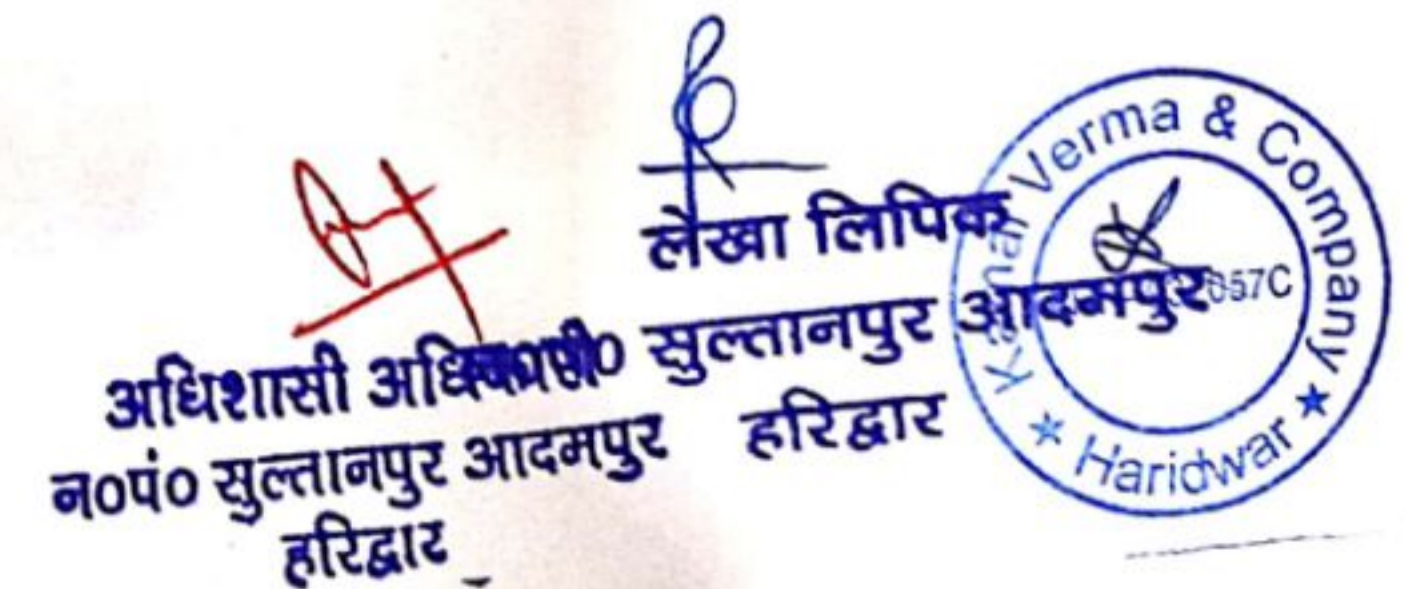 लेखा लिपिक
न०पं० सुल्तानपुर आदमपुर
हरिद्वार
अधिशासी अधिकारी
न०पं० सुल्तानपुर आदमपुर
हरिद्वार
Verma & Company
★ Haridwar ★
857C